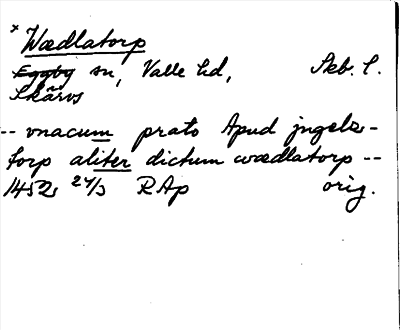 * Wædlatorp
Eggby sn, Valle hd, Skb. l.
Skärvs
-- vnacum prato Apud jngelz-
torp aliter dictum wædlatorp --
1452 24/3 RAp orig.